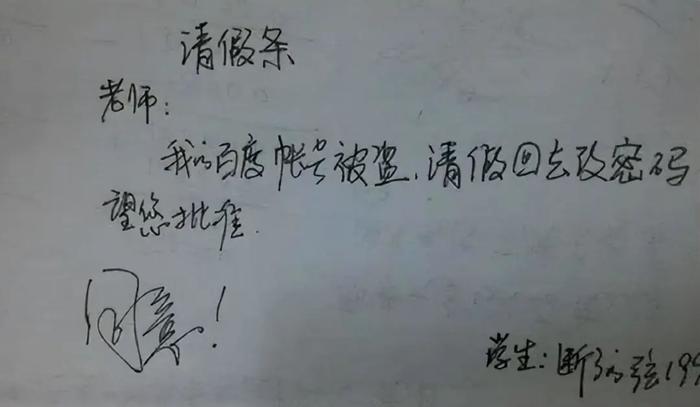 请假条
老师:
我的百度帐号被盗,请假回去改密码
望您批准.
同意!
学生:断了的弦199